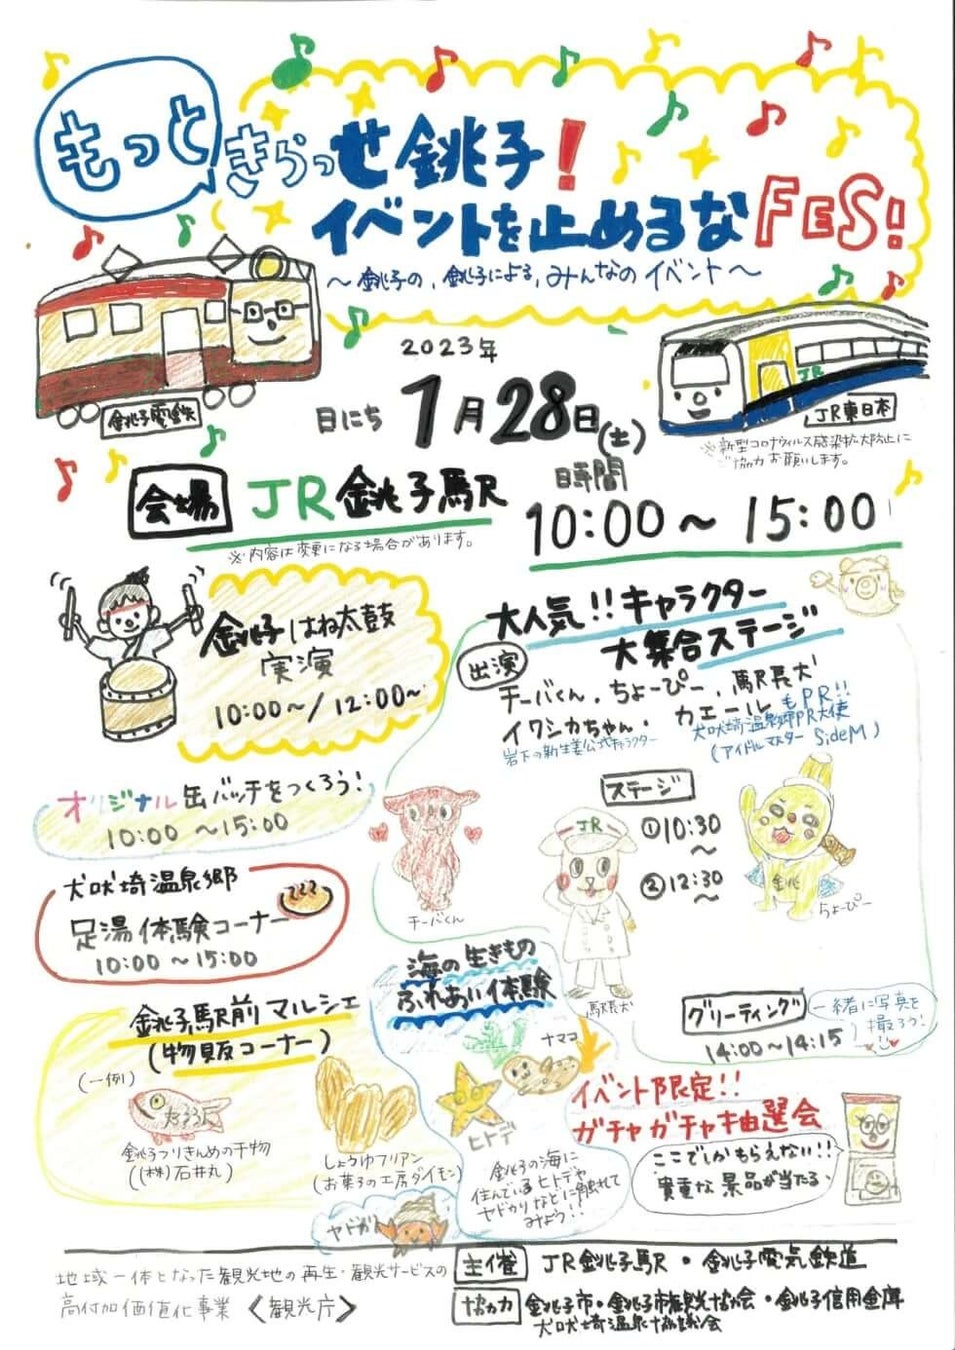 もっと
きらっせ銚子!
イベントを止めるなFES!
～銚子の、銚子による、みんなのイベント～
2023年
日にち 1月28日(土)
銚子電鉄
JR
JR東日本
※新型コロナウィルス感染拡大防止に
ご協力お願いします。
会場 JR銚子駅
※内容は変更になる場合があります。
時間
10:00～15:00
銚子はね太鼓
実演
10:00～/12:00～
大人気!!キャラクター
大集合ステージ
出演
チーバくん、ちょーぴー、駅長犬
イワシカちゃん・カエールもPR!!
岩下の新生姜公式キャラクター
犬吠埼温泉郷PR大使
(アイドルマスター SideM)
オリジナル缶バッチをつくろう!
10:00～15:00
ステージ
①10:30～
②12:30～
JR
銚子
チーバくん
駅長犬
ちょーぴー
犬吠埼温泉郷
足湯体験コーナー
10:00～15:00
グリーティング
14:00～14:15
一緒に写真を
撮ろう!
銚子駅前マルシェ
(物販コーナー)
(一例)
銚子つりきんめの干物
((株)石井丸)
しょうゆフリアン
(お菓子の工房ダイモン)
海の生きもの
ふれあい体験
ナマコ
ヒトデ
銚子の海に
住んでいるヒトデや
ヤドカリなどに触れて
みよう!!
ヤドカリ
イベント限定!!
ガチャガチャ抽選会
ここでしかもらえない!!
貴重な景品が当たる、
地域一体となった観光地の再生・観光サービスの
高付加価値化事業《観光庁》
主催 JR銚子駅・銚子電気鉄道
協力 銚子市・銚子市観光協会・銚子信用金庫
犬吠埼温泉協議会